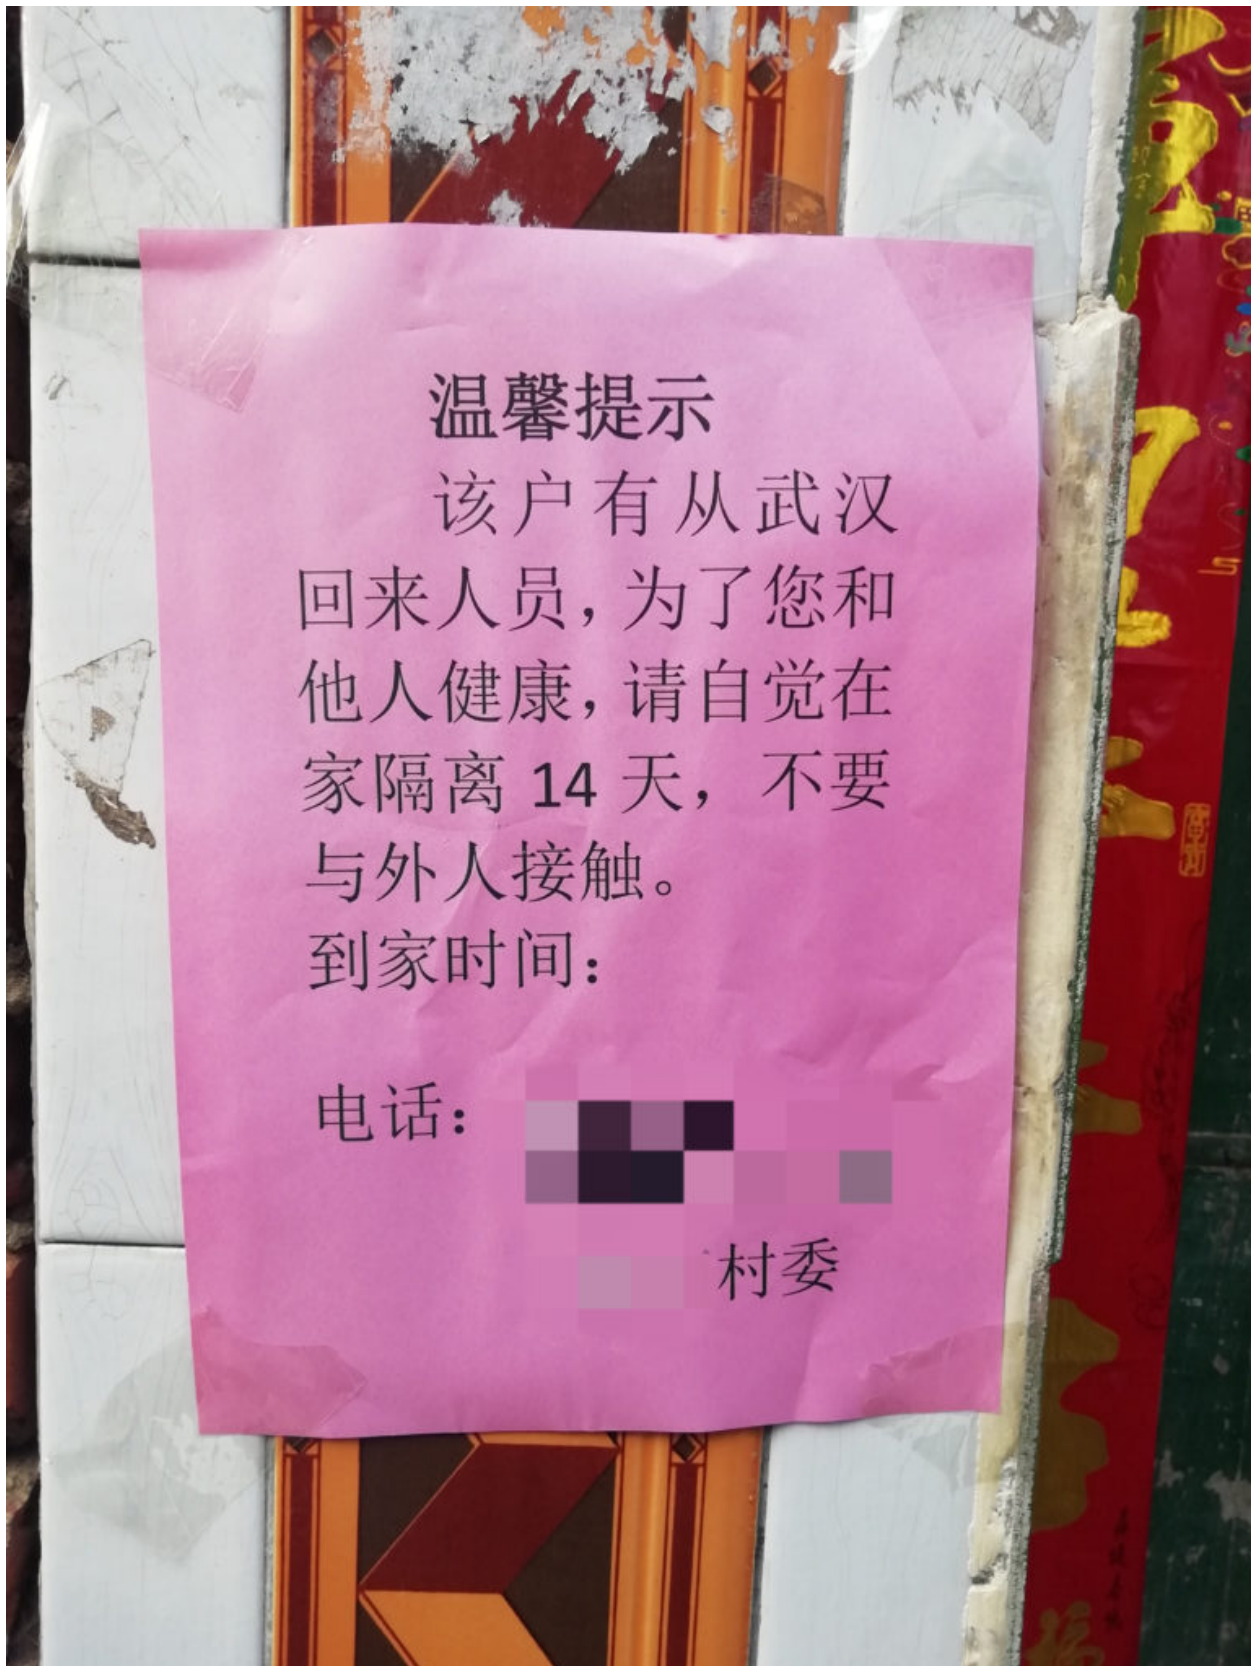 温馨提示
该户有从武汉
回来人员，为了您和
他人健康，请自觉在
家隔离 14 天，不要
与外人接触。
到家时间：
电话：
村委